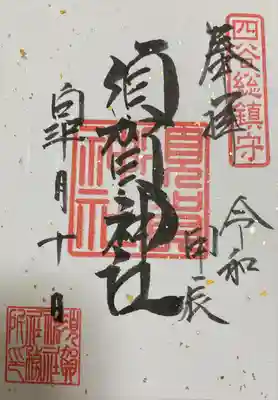 四谷総鎮守
奉拝
令和
甲辰
須賀神社
須賀神社
皐月十日